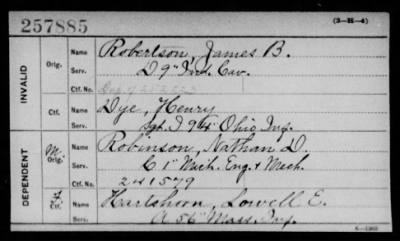 257885 (3-H-4)
INVALID
Orig. Name Robertson, James B.
Serv. D 9" Ind. Cav.
Ctf. No.
Ctf. Name Dye, Henry
Serv. Sgt. I 94" Ohio Inf.
DEPENDENT
M. Orig. Name Robinson, Nathan D.
Serv. C 1" Mich. Eng. & Mech.
Ctf. No. 241579
Ctf. Name Hartshorn, Lowell E.
Serv. A 56" Mass. Inf.